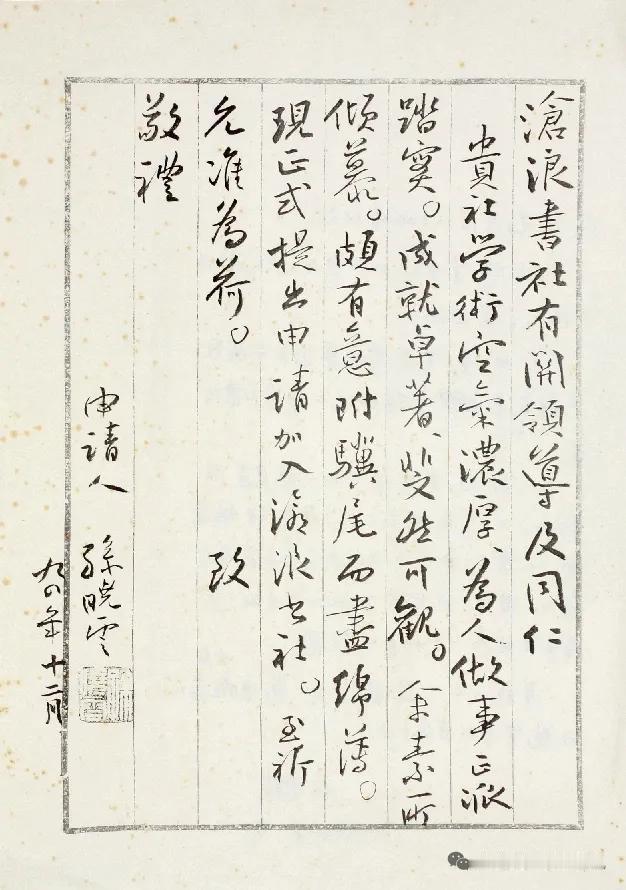 滄浪書社有關領導及同仁
貴社學術空氣濃厚、為人做事正派
踏實。成就卓著、斐然可觀。余素所
傾慕。頗有意附驥尾而盡綿薄。
現正式提出申請加入滄浪書社。至祈
允准為荷。 致
敬禮
申請人 孫曉雲
九四年十二月